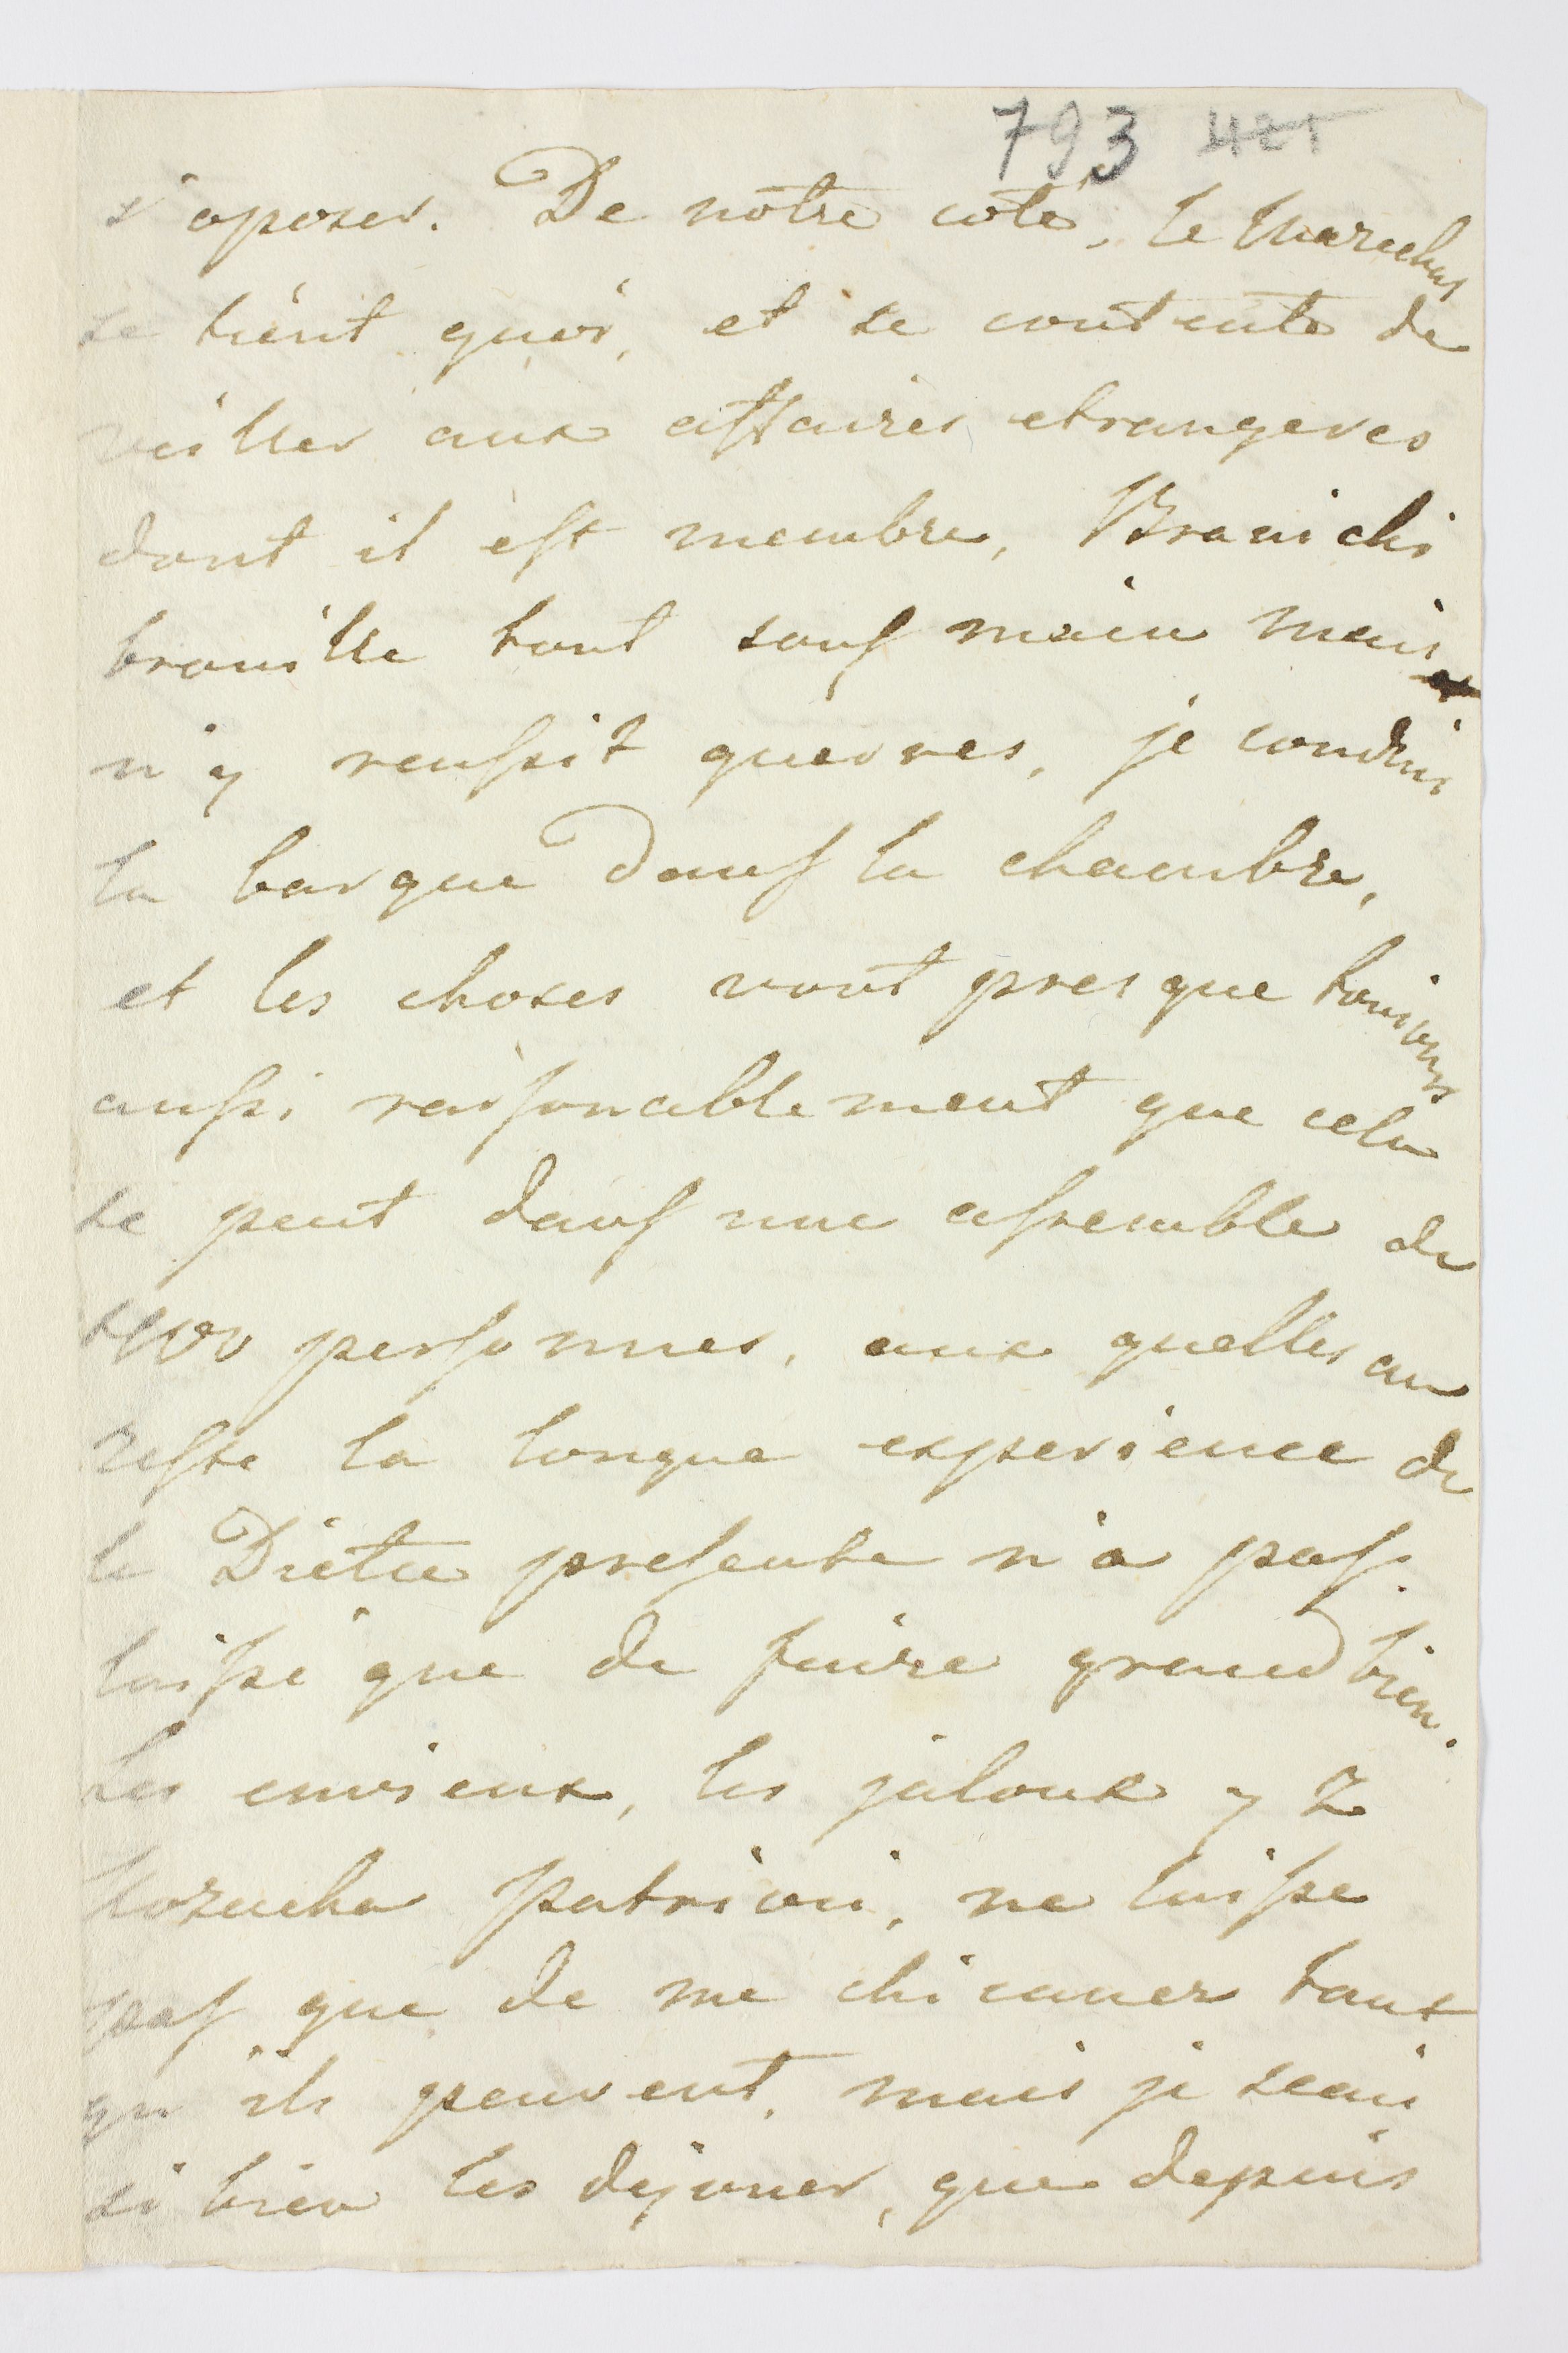 793 421
s'oposer. De nôtre coté, le Marechal
se tient quoi, et se contente de
veiller aux affaires etrangeres
dont il est membre, Branichi
brouille tout sous main mais
n'y reussit guerres, je conduis
la barque dans la chambre,
et les choses vont presque toujours
aussi raisonablement que cela
se peut dans une assemble de
400 personnes, aux quelles au
reste la longue experience de
la Diette presente n'a pas
laissé que de faire grand bien.
Les envieux, les jaloux y Z
patrioci, ne laisse
pas que de me chicaner tant
qu'ils peuvent, mais je scai
si bien les dejouer, que depuis